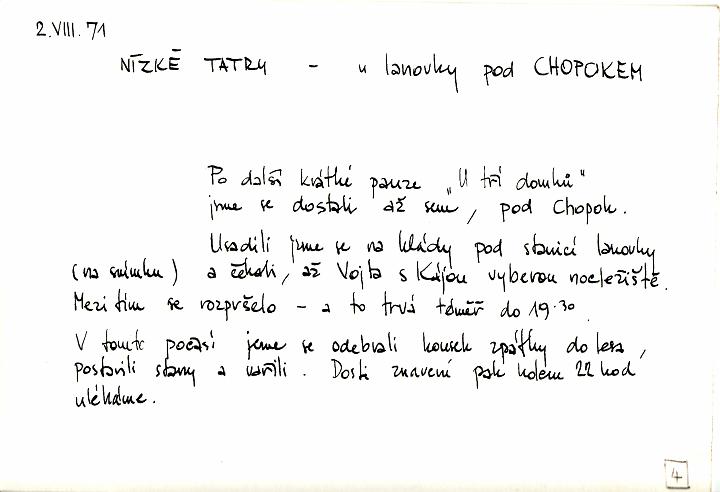 2.VIII.71
NÍZKÉ TATRY - u lanovky pod CHOPOKEM
Po další krátké pauze „U tří domků"
jsme se dostali až sem, pod Chopok.
Usadili jsme se na klády pod stanicí lanovky
(na snímku) a čekali, až Vojta s Kájou vyberou nocležiště.
Mezitím se rozpršelo - a to trvá téměř do 19.30
V tomto počasí jsme se odebrali kousek zpátky do lesa,
postavili stany a uvařili. Dosti znaveni pak kolem 22 hod
uléháme.
4